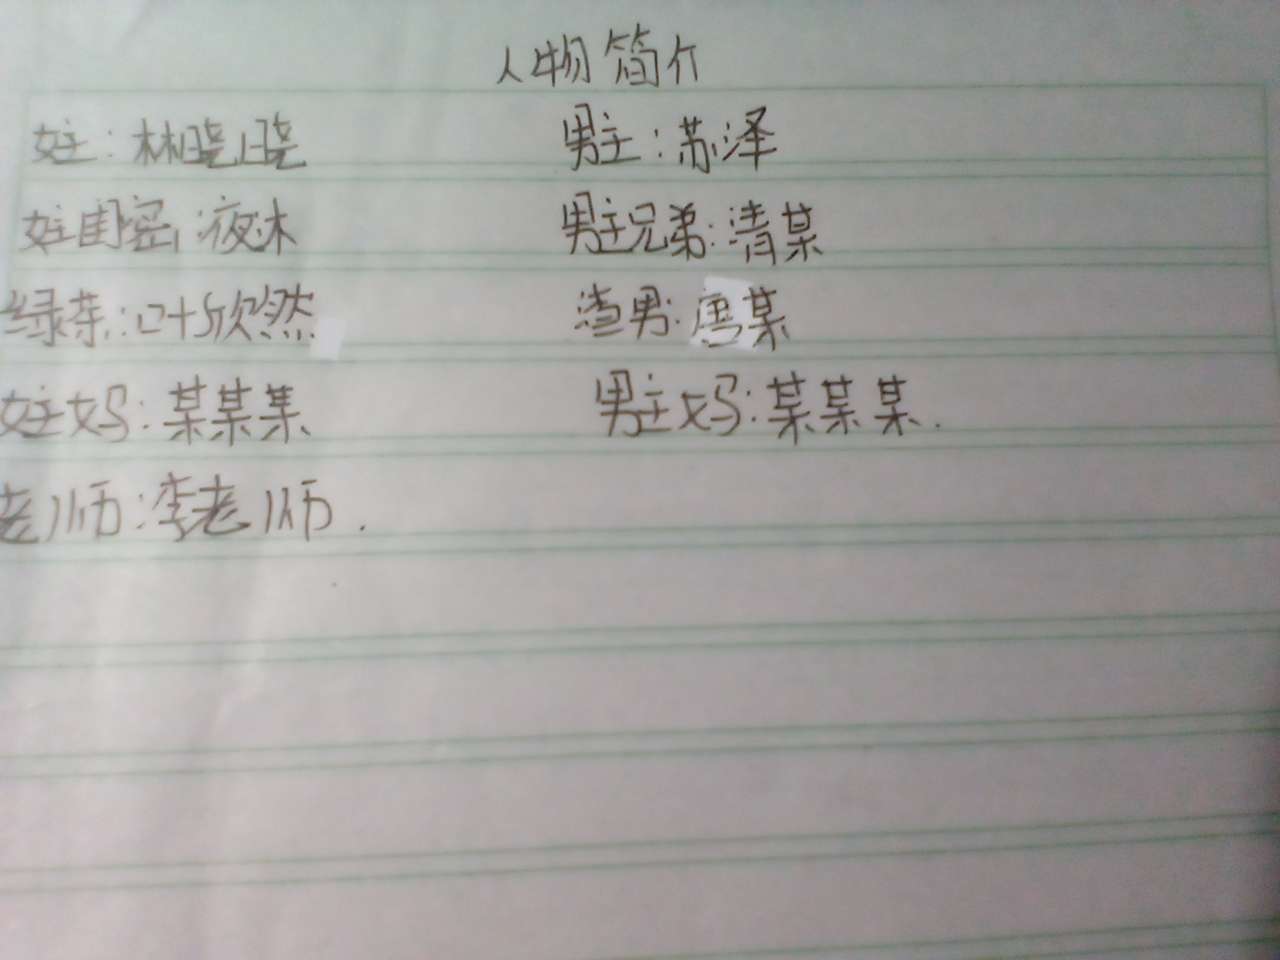 人物简介
女主：林晓晓 男主：苏泽
女主闺密：夜沐 男主兄弟：清某
绿茶：叶欣然 渣男：唐某
女主妈：某某某 男主妈：某某某.
老师：李老师.